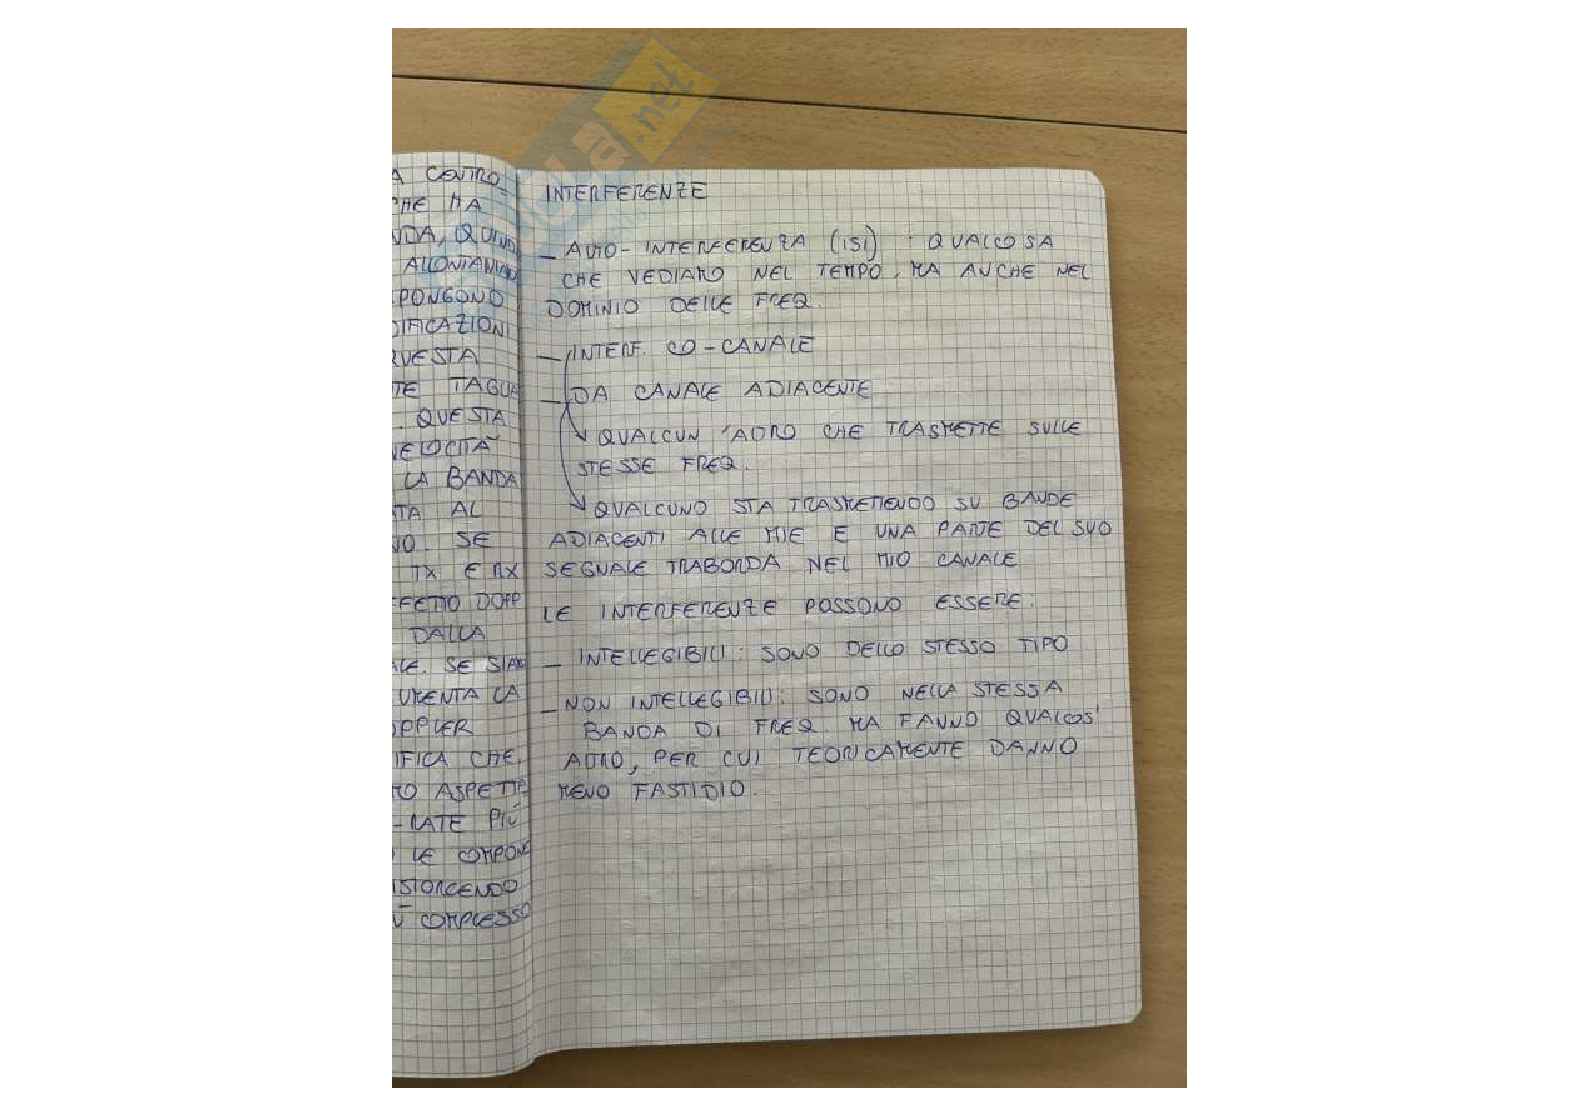 A CENTRO
CHE HA
NDA, QUIND
ALLONTANIAMO
PONGONO
DIFICAZIONI
QUESTA
TE TAGLIA
QUESTA
VELOCITÀ
LA BANDA
TA AL
NO. SE
TX E RX
FFETTO DOPP
DALLA
ALE. SE SIAM
UMENTA LA
OPPLER
IFICA CHE,
TO ASPETTA
-RATE PIÙ
LE COMPONE
ISTORCENDO
COMPLESSO
INTERFERENZE
- AUTO-INTERFERENZA (ISI) : QUALCOSA
CHE VEDIAMO NEL TEMPO, MA ANCHE NEL
DOMINIO DELLE FREQ.
- INTERF. CO-CANALE
- DA CANALE ADIACENTE
QUALCUN'ALTRO CHE TRASMETTE SULLE
STESSE FREQ.
QUALCUNO STA TRASMETTENDO SU BANDE
ADIACENTI ALLE MIE E UNA PARTE DEL SUO
SEGNALE TRABORDA NEL MIO CANALE
LE INTERFERENZE POSSONO ESSERE:
- INTELLEGIBILI: SONO DELLO STESSO TIPO
- NON INTELLEGIBILI: SONO NELLA STESSA
BANDA DI FREQ. MA FANNO QUALCOS'
ALTRO, PER CUI TEORICAMENTE DANNO
MENO FASTIDIO.
.net